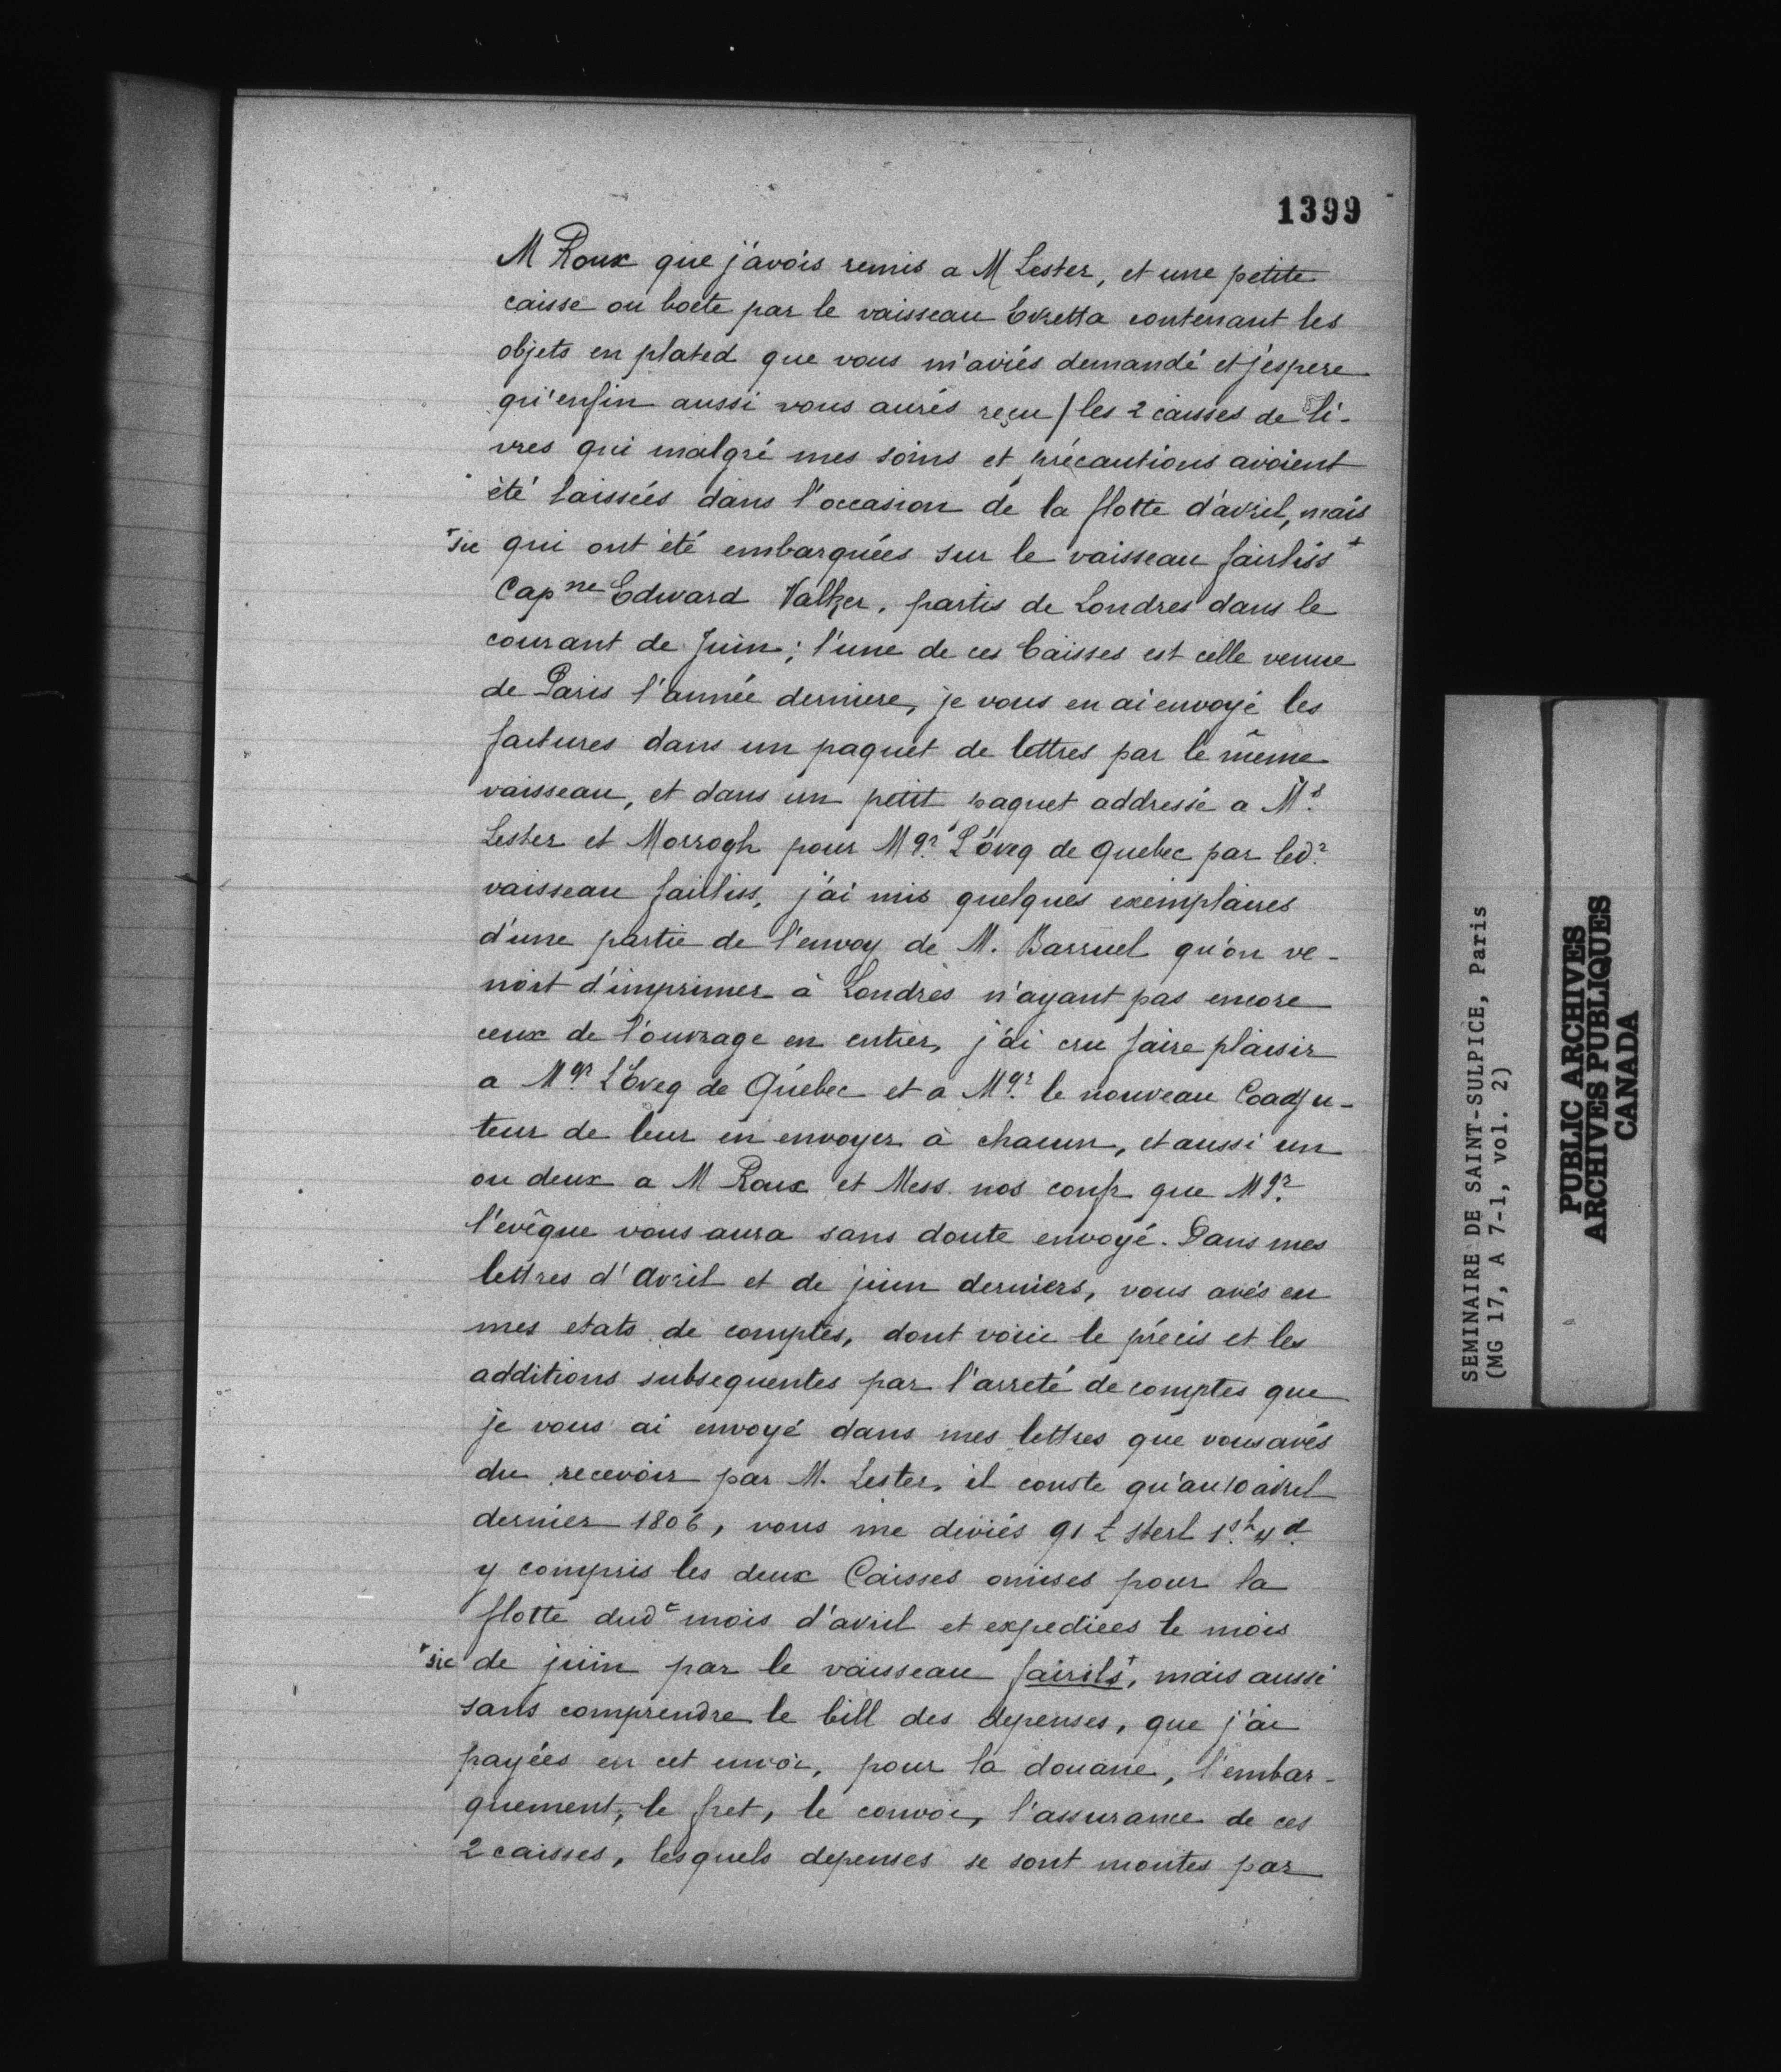 1399
M Roux que j'avois remis a M Lester, et une petite
caisse ou boete par le vaisseau Eretta contenant les
objets en plated que vous m'aviés demandé et j'espere
qu'enfin aussi vous aurés reçu / les 2 caisses de li-
vres qui malgré mes soins et précautions avoient
été laissées dans l'occasion de la flotte d'avril, mais
+sic qui ont été embarquées sur le vaisseau fairliss +
Capne Edward Valker, partis de Londres dans le
courant de Juin; l'une de ces Caisses est celle venue
de Paris l'année derniere, je vous en ai envoyé les
factures dans un paquet de lettres par le même
vaisseau, et dans un petit paquet addressé a Mrs
Lester et Morrogh pour Mgr L'éveq de Quebec par ledt
vaisseau fairliss, j'ai mis quelques exemplaires
d'une partie de l'envoy de M. Barruel qu'on ve-
noit d'imprimer à Londres n'ayant pas encore
ceux de l'ouvrage en entier, j'ai cru faire plaisir
a Mgr L'Eveq de Québec et a Mgr le nouveau Coadju-
teur de leur en envoyer à chacun, et aussi un
ou deux a M Roux et Mess. nos confr que Mgr
l'evêque vous aura sans doute envoyé. Dans mes
lettres d'Avril et de juin derniers, vous avés eu
mes etats de comptes, dont voici le précis et les
additions subsequentes par l'arreté de comptes que
je vous ai envoyé dans mes lettres que vous avés
du recevoir par M. Lester, il conste qu'au 10 avril
dernier 1806, vous me deviés 91 £ sterl 1sh 4d
y compris les deux Caisses omises pour la
flotte dudt mois d'avril et expediées le mois
+sic de juin par le vaisseau fairils+, mais aussi
sans comprendre le bill des depenses, que j'ai
payées en cet envoi, pour la douane, l'embar-
quement, le fret, le convoi, l'assurance de ces
2 caisses, lesquels depenses se sont montés par
SEMINAIRE DE SAINT-SULPICE, Paris
(MG 17, A 7-1, vol. 2)
PUBLIC ARCHIVES
ARCHIVES PUBLIQUES
CANADA